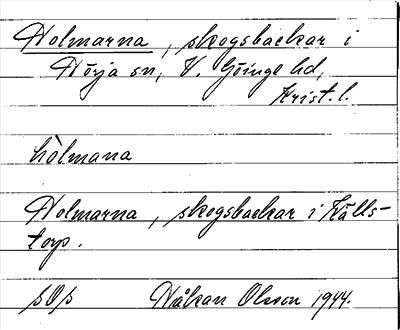 Holmarna, skogsbackar i
Hörja sn, V. Göinge hd,
Krist. l.
hòlmana
Holmarna, skogsbackar i Källs-
torp.
pOp Håkan Olsson 1944.